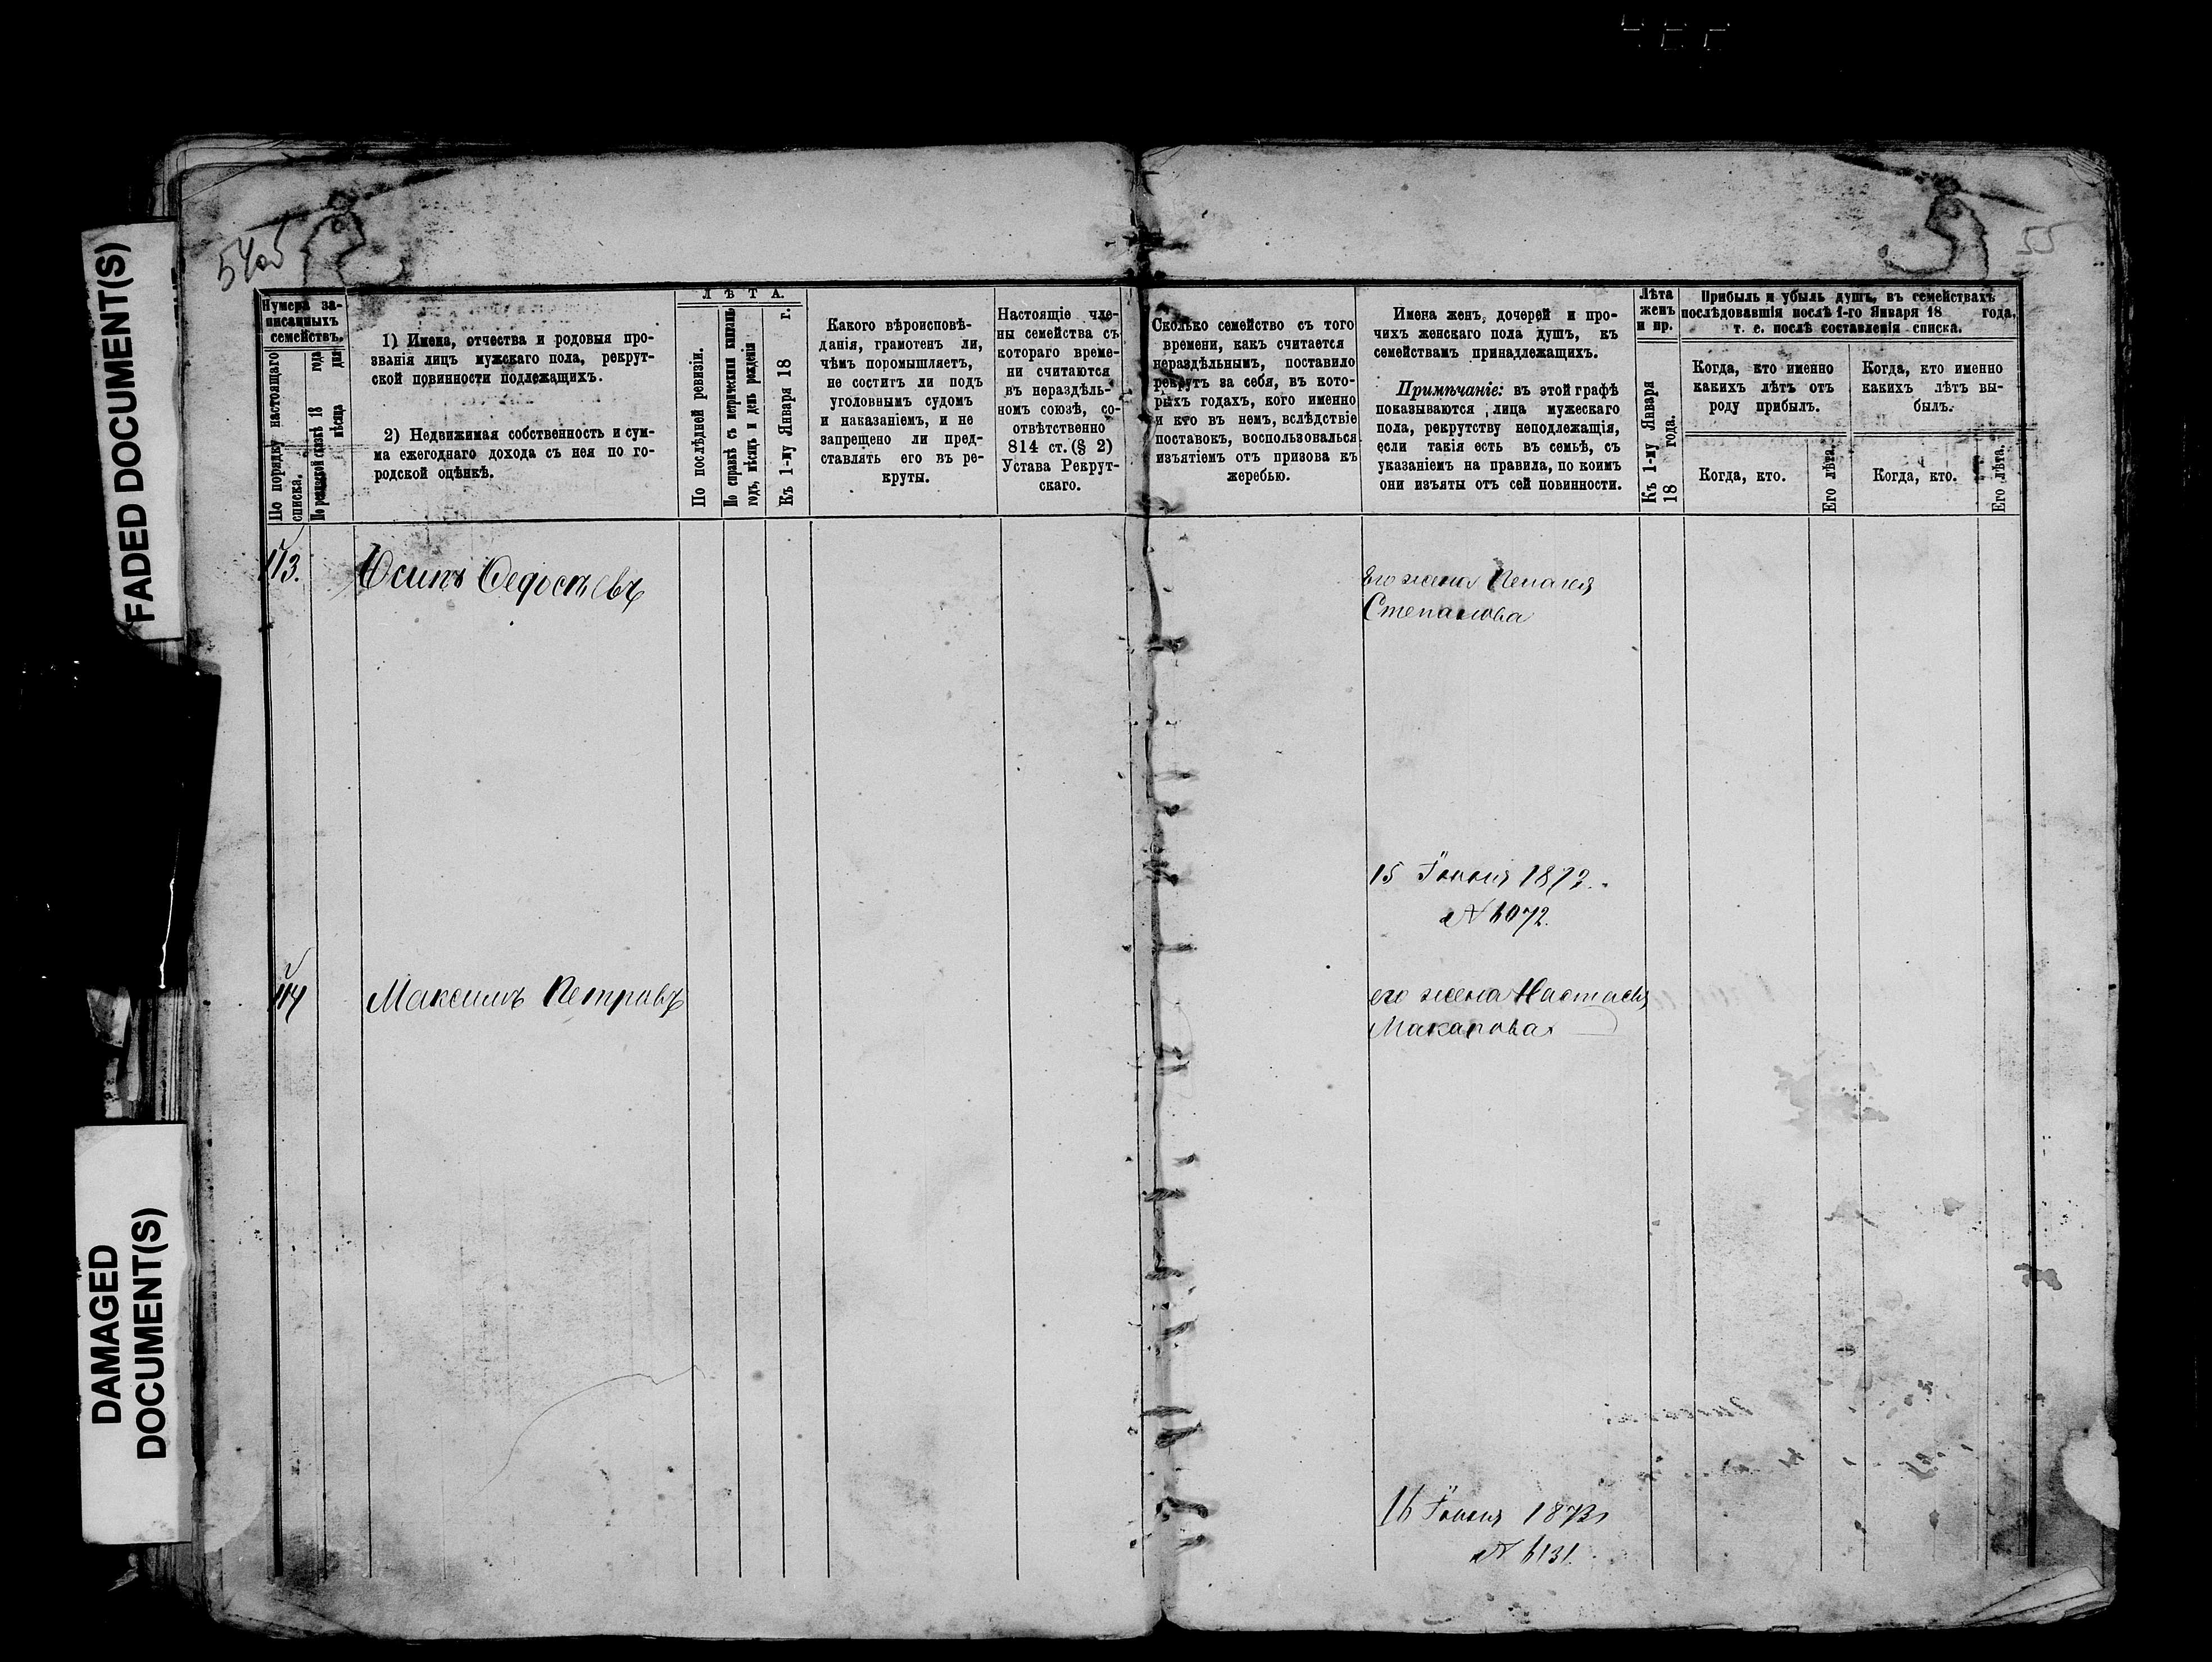 FADED DOCUMENT(S)
DAMAGED
DOCUMENT(S)
54об
55
Нумера за-
писанныхъ
семействъ.
По порядку настоящаго
списка.
По ревизской сказкѣ 18 года
мѣсяца дня
1) Имена, отчества и родовыя про-
званія лицъ мужскаго пола, рекрут-
ской повинности подлежащихъ.
2) Недвижимая собственность и сум-
ма ежегоднаго дохода съ нея по го-
родской оцѣнкѣ.
ЛѢТА.
По послѣдней ревизіи.
По справкѣ съ метрическими книгами
годъ, мѣсяцъ и день рожденія
Къ 1-му Января 18 г.
Какого вѣроисповѣ-
данія, грамотенъ ли,
чѣмъ поромышляетъ,
не соститъ ли подъ
уголовнымъ судомъ
и наказаніемъ, и не
запрещено ли пред-
ставлять его въ ре-
круты.
Настоящіе чле-
ны семейства съ
котораго време-
ни считаются
въ нераздѣль-
номъ союзѣ, со-
отвѣтственно
814 ст. (§ 2)
Устава Рекрут-
скаго.
Сколько семейство съ того
времени, какъ считается
нераздѣльнымъ, поставило
рекрутъ за себя, въ кото-
рыхъ годахъ, кого именно
и кто въ немъ, вслѣдствіе
поставокъ, воспользовался
изъятіемъ отъ призова къ
жеребью.
Имена женъ, дочерей и про-
чихъ женскаго пола душъ, къ
семействамъ принадлежащихъ.
Примѣчаніе: въ этой графѣ
показываются лица мужескаго
пола, рекрутству неподлежащія,
если такія есть въ семьѣ, съ
указаніемъ на правила, по коимъ
они изъяты отъ сей повинности.
Лѣта
женъ
и пр.
Къ 1-му Января
18 года.
Прибыль и убыль душъ, въ семействахъ
послѣдовавшія послѣ 1-го Января 18 года,
т. е. послѣ составленія списка.
Когда, кто именно
какихъ лѣтъ отъ
роду прибылъ.
Когда, кто именно
какихъ лѣтъ вы-
былъ.
Когда, кто.
Его лѣта.
Когда, кто.
Его лѣта.
113.
Осипъ Ѳедосѣевъ
Его жена Пелагея
Степанова
15 Іюня 1873.
№ 6072.
114
Максимъ Петровъ
его жена Настасья
Макарова
16 Іюня 1873
№ 6131.